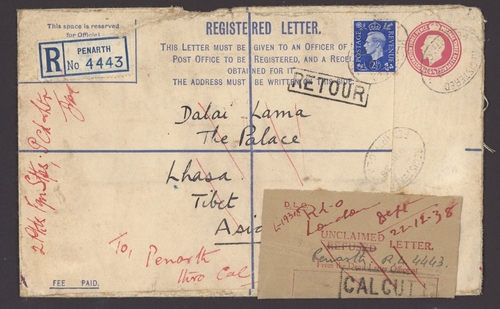 This space is reserved
for Official
R
PENARTH
No 4443
REGISTERED LETTER.
THIS LETTER MUST BE GIVEN TO AN OFFICER OF
POST OFFICE TO BE REGISTERED, AND A RECEI
OBTAINED FOR IT.
THE ADDRESS MUST BE WRITTEN ON THIS
POSTAGE
REVENUE
RETOUR
Dalai Lama
The Palace
Lhasa
Tibet
Asia
To, Penarth
thro Cal
FEE PAID.
D.L.O
London
Dept
22-12-38
UNCLAIMED
REFUSED LETTER.
Penarth R.L 4443.
CALCUT